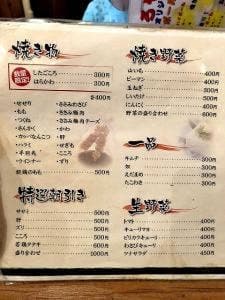 焼き物
数量限定!
したごころ 300円
はらかわ 300円
各400円
・せせり
・もも
・つくね
・さんかく
・かっぱなんこつ
・ハラミ
・手羽先
・ウインナー
・ささみわさび
・ささみ梅肉
・ささみ梅肉チーズ
・かわ
・肝
・せぎも
・こころ
・ずり
500円
特選朝引き
ササミ 500円
肝 500円
ズリ 500円
こころ 500円
若鶏タタキ 500円
盛り合わせ 1000円
焼き野菜
山いも 400円
ピーマン
玉ねぎ
しいたけ
にんにく 400円
野菜の盛り合わせ 600円
一品
キムチ
枝
えだまめ
たこわさ 300円
生野菜
トマト 400円
キューリマヨ 400円
ピリカラキューリ 400円
わさびキューリ 400円
ツナサラダ 450円